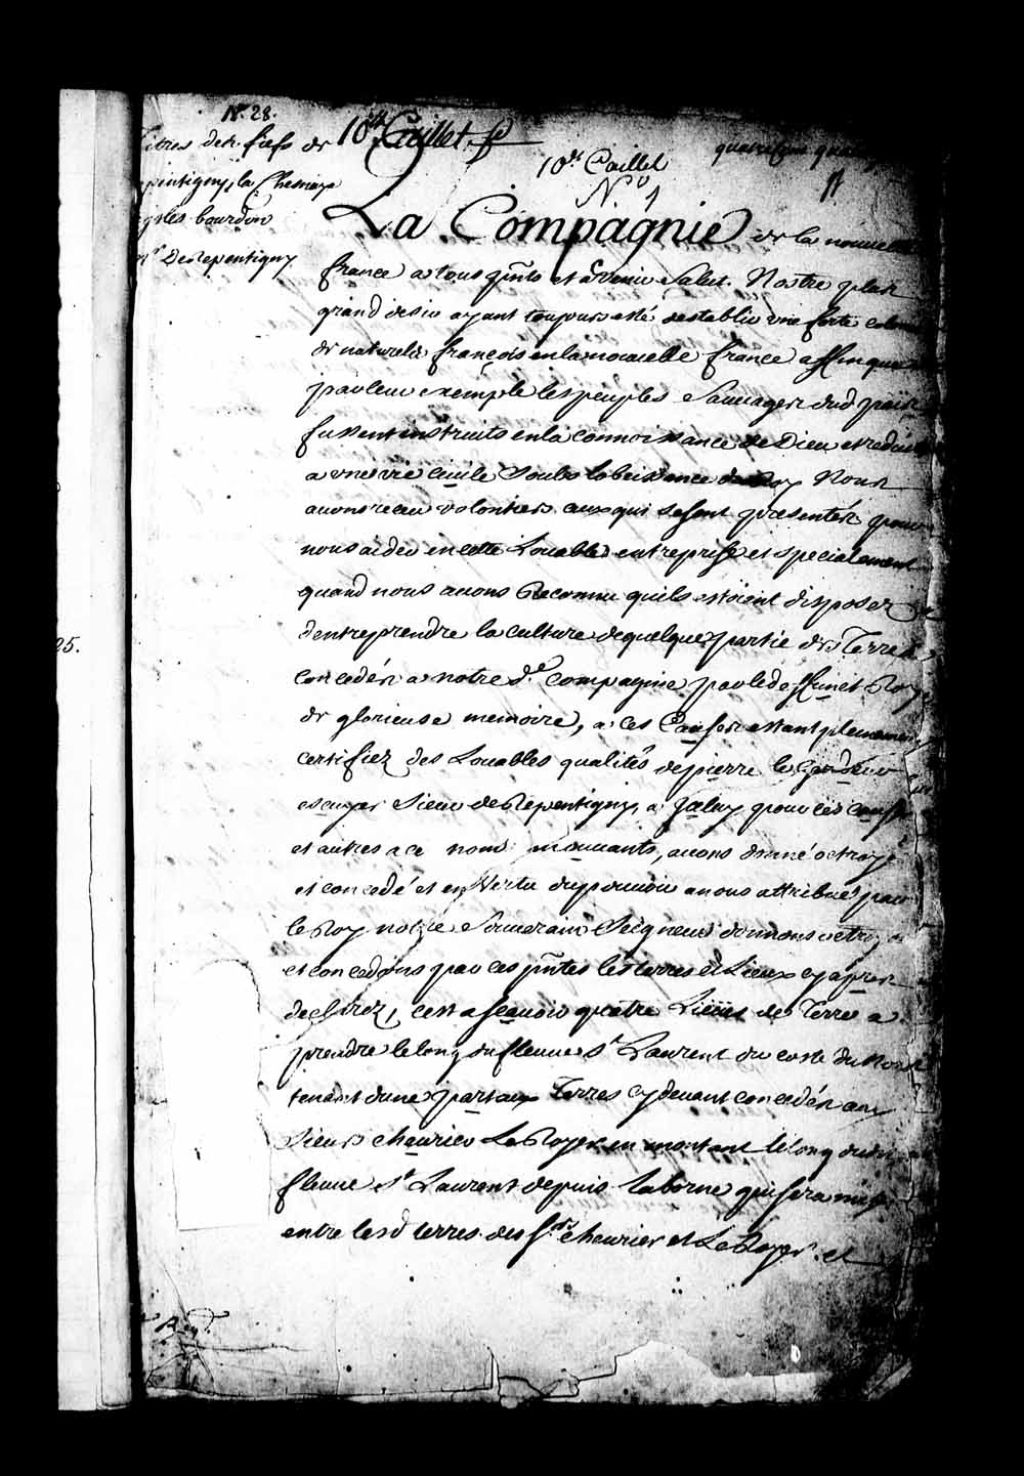 N.° 28.
Titres des fiefs de
pentigny, la Chesnaye
bourdon
De Repentigny
10.e Caillet
10.e Caillet
N.° 1
La Compagnie de la nouvelle
france a tous pñts et avenir Salut. Nostre plus
grand desir ayant toujours esté destablir une forte colonie
de naturels françois en la nouvelle france affin que
par leur exemple les peuples Sauvages dud païs
fussent instruits en la connoissance de Dieu et reduits
a une vie civile Soubs lobeissance du Roy Nous
avons receu volontiers ceux qui se sont presentés pour
nous aider en cette Louable entreprise et specialement
quand nous avons Reconnu quils estoient disposez
dentreprendre la culture de quelque partie des Terres
concedés a notre d.e Compagnie par le deffunct Roy
de glorieuse memoire, a ces Causes estant pleinement
certifiez des Louables qualités de pierre le Gardeur
escuyer Sieur de Repentigny, a Iceluy pour ces causes
et autres a ce nous mouvants, avons donné octroyé
et concedé et en Vertu du pouvoir a nous attribué par
le Roy notre Souverain Seigneur donnons octroyons
et concedons par ces pñtes les terres et Lieux cy apres
declarez, cest a scavoir quatre Lieües de Terre a
prendre le long du fleuve S.t Laurent du costé du Nord
tenant dune part aux Terres cy devant concedés aux
Sieurs cheurier Le Royer en montant le long dudit
fleuve S.t Laurent depuis la borne qui sera mise
entre lesd terres des S.rs cheurier et Le Royer, et
25.